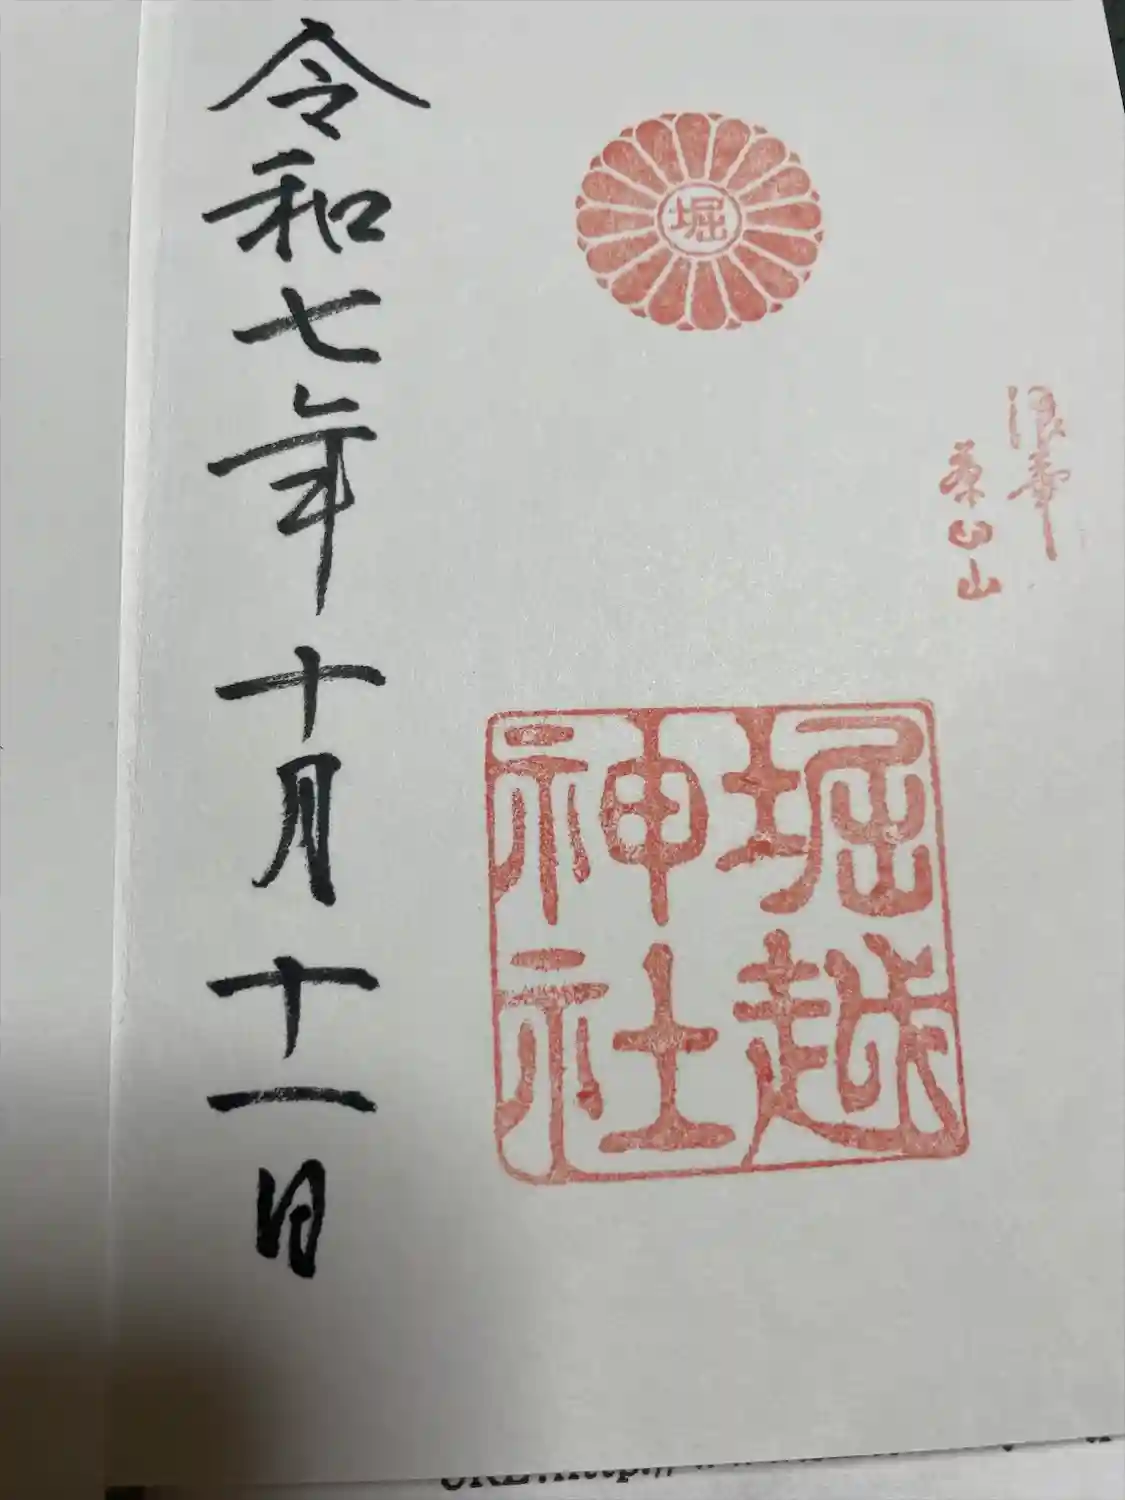 浪華
茶臼山
堀
堀越
神社
令和七年十月十一日
URL:http://